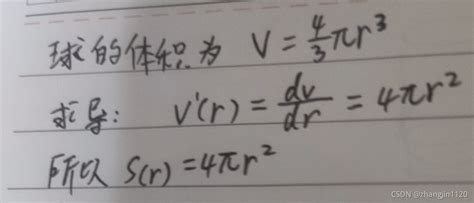 球的体积为 V = 4/3 πr³
求导： V'(r) = dv/dr = 4πr²
所以 S(r) = 4πr²
CSDN @zhangjin1120